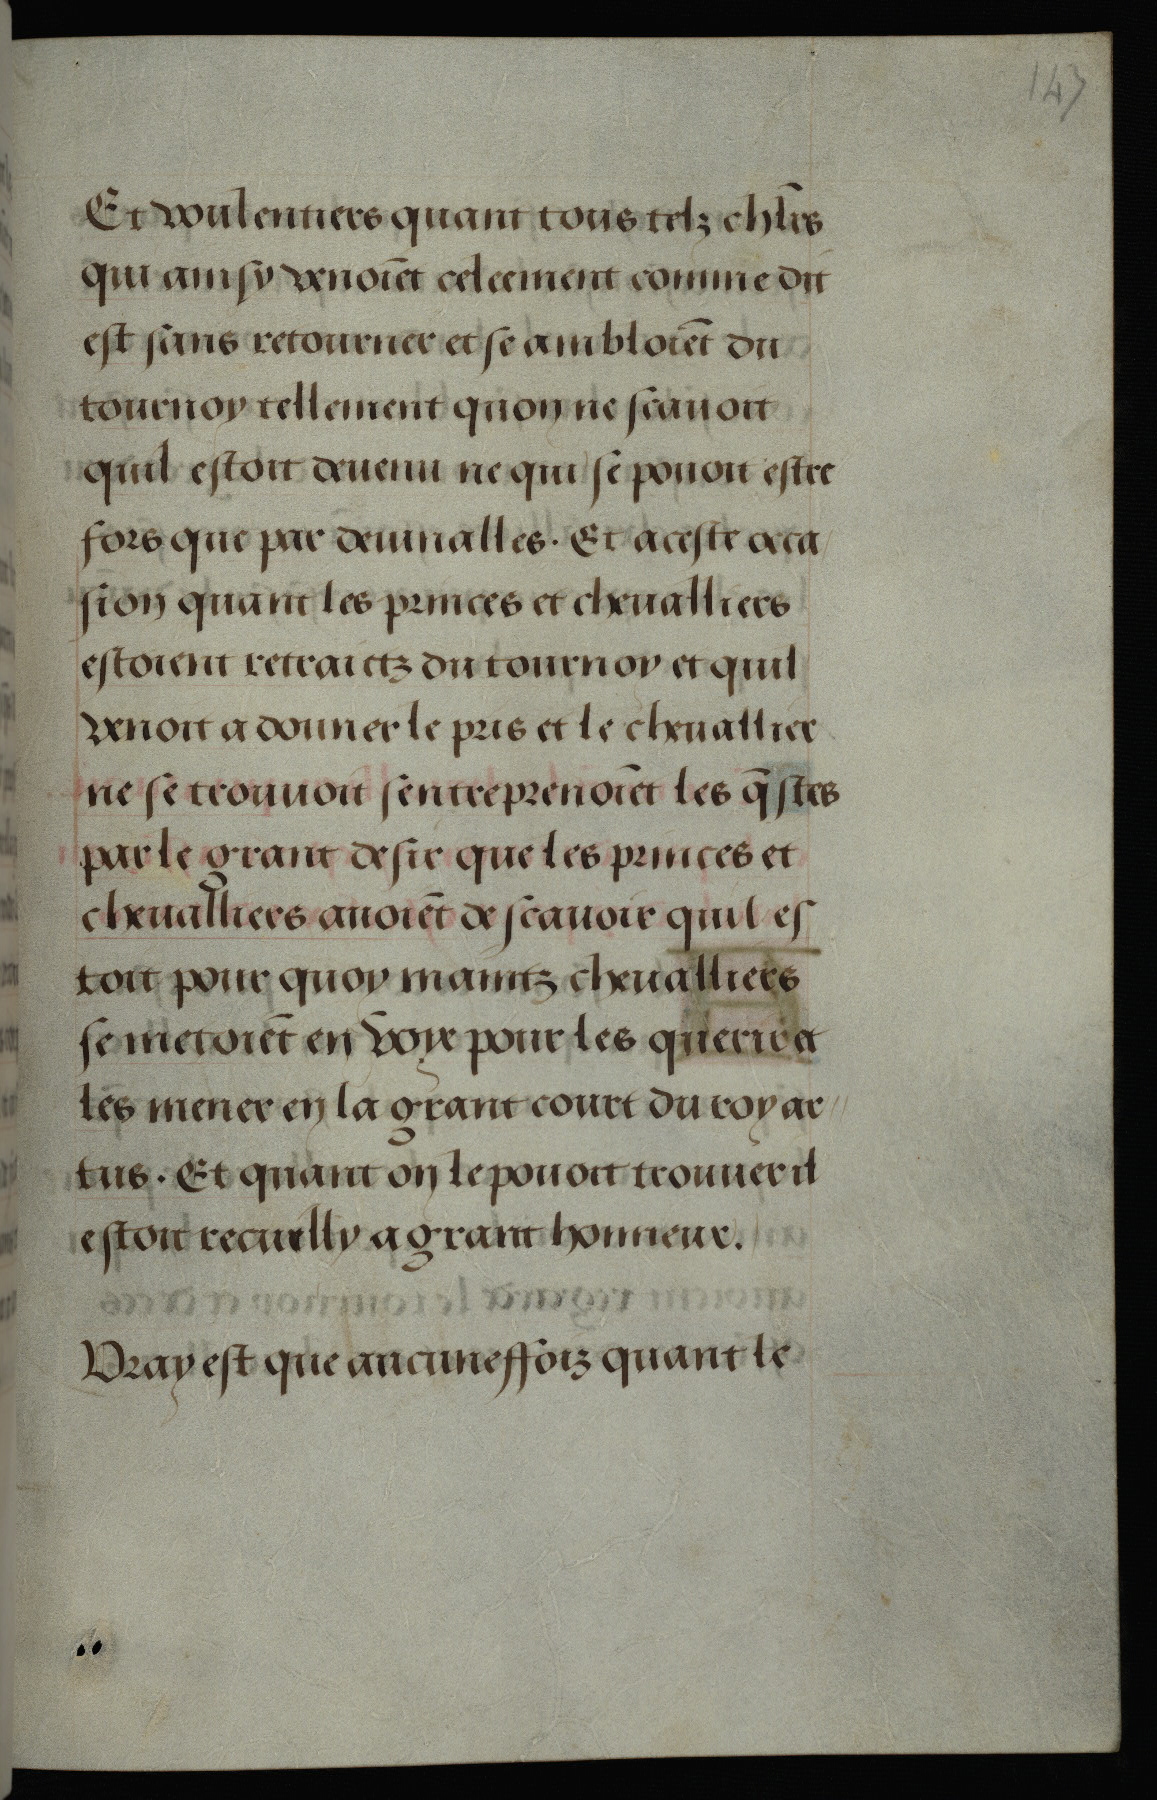 147
Et voulentiers quant tous telz chl̄rs
qui ainsy venoiēt celeement comme dit
est sans retourner et se ambloiēt du
tournoy tellement quon ne scauoit
quil estoit deuenu ne qui se pouoit estre
fors que par deuinalles. Et aceste occa/
sion quant les princes et cheualliers
estoient retraictz du tournoy et quil
venoit a donner le pris et le cheuallier
ne se trouuoit sentreprenoiēt les q̄stes
par le grant desir que les princes et
cheualliers auoiēt de scauoir quil es
toit pour quoy maintz cheualliers
se metoiēt en voye pour les querir et
les mener en la grant court du roy ar//
tus. Et quant on le pouoit trouuer il
estoit recueilly a grant honneur.
Vray est que aucuneffoiz quant le